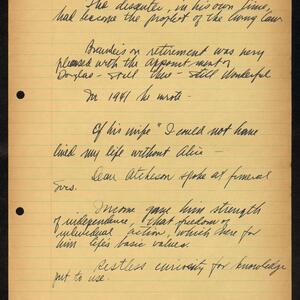 The disputer, in his own time,
had become the prophet of the living law.
Brandeis on retirement was very
pleased with the appointment of
Douglas – – Still Wonderful
In 1941 he wrote –
Of his wife "I could not have
lived my life without Alice –
Dean Atcheson spoke at funeral
svcs.
Income gave him strength
of independence, that freedom of
individual action, which were for
him life's basic values.
Restless curiosity for knowledge
put to use.